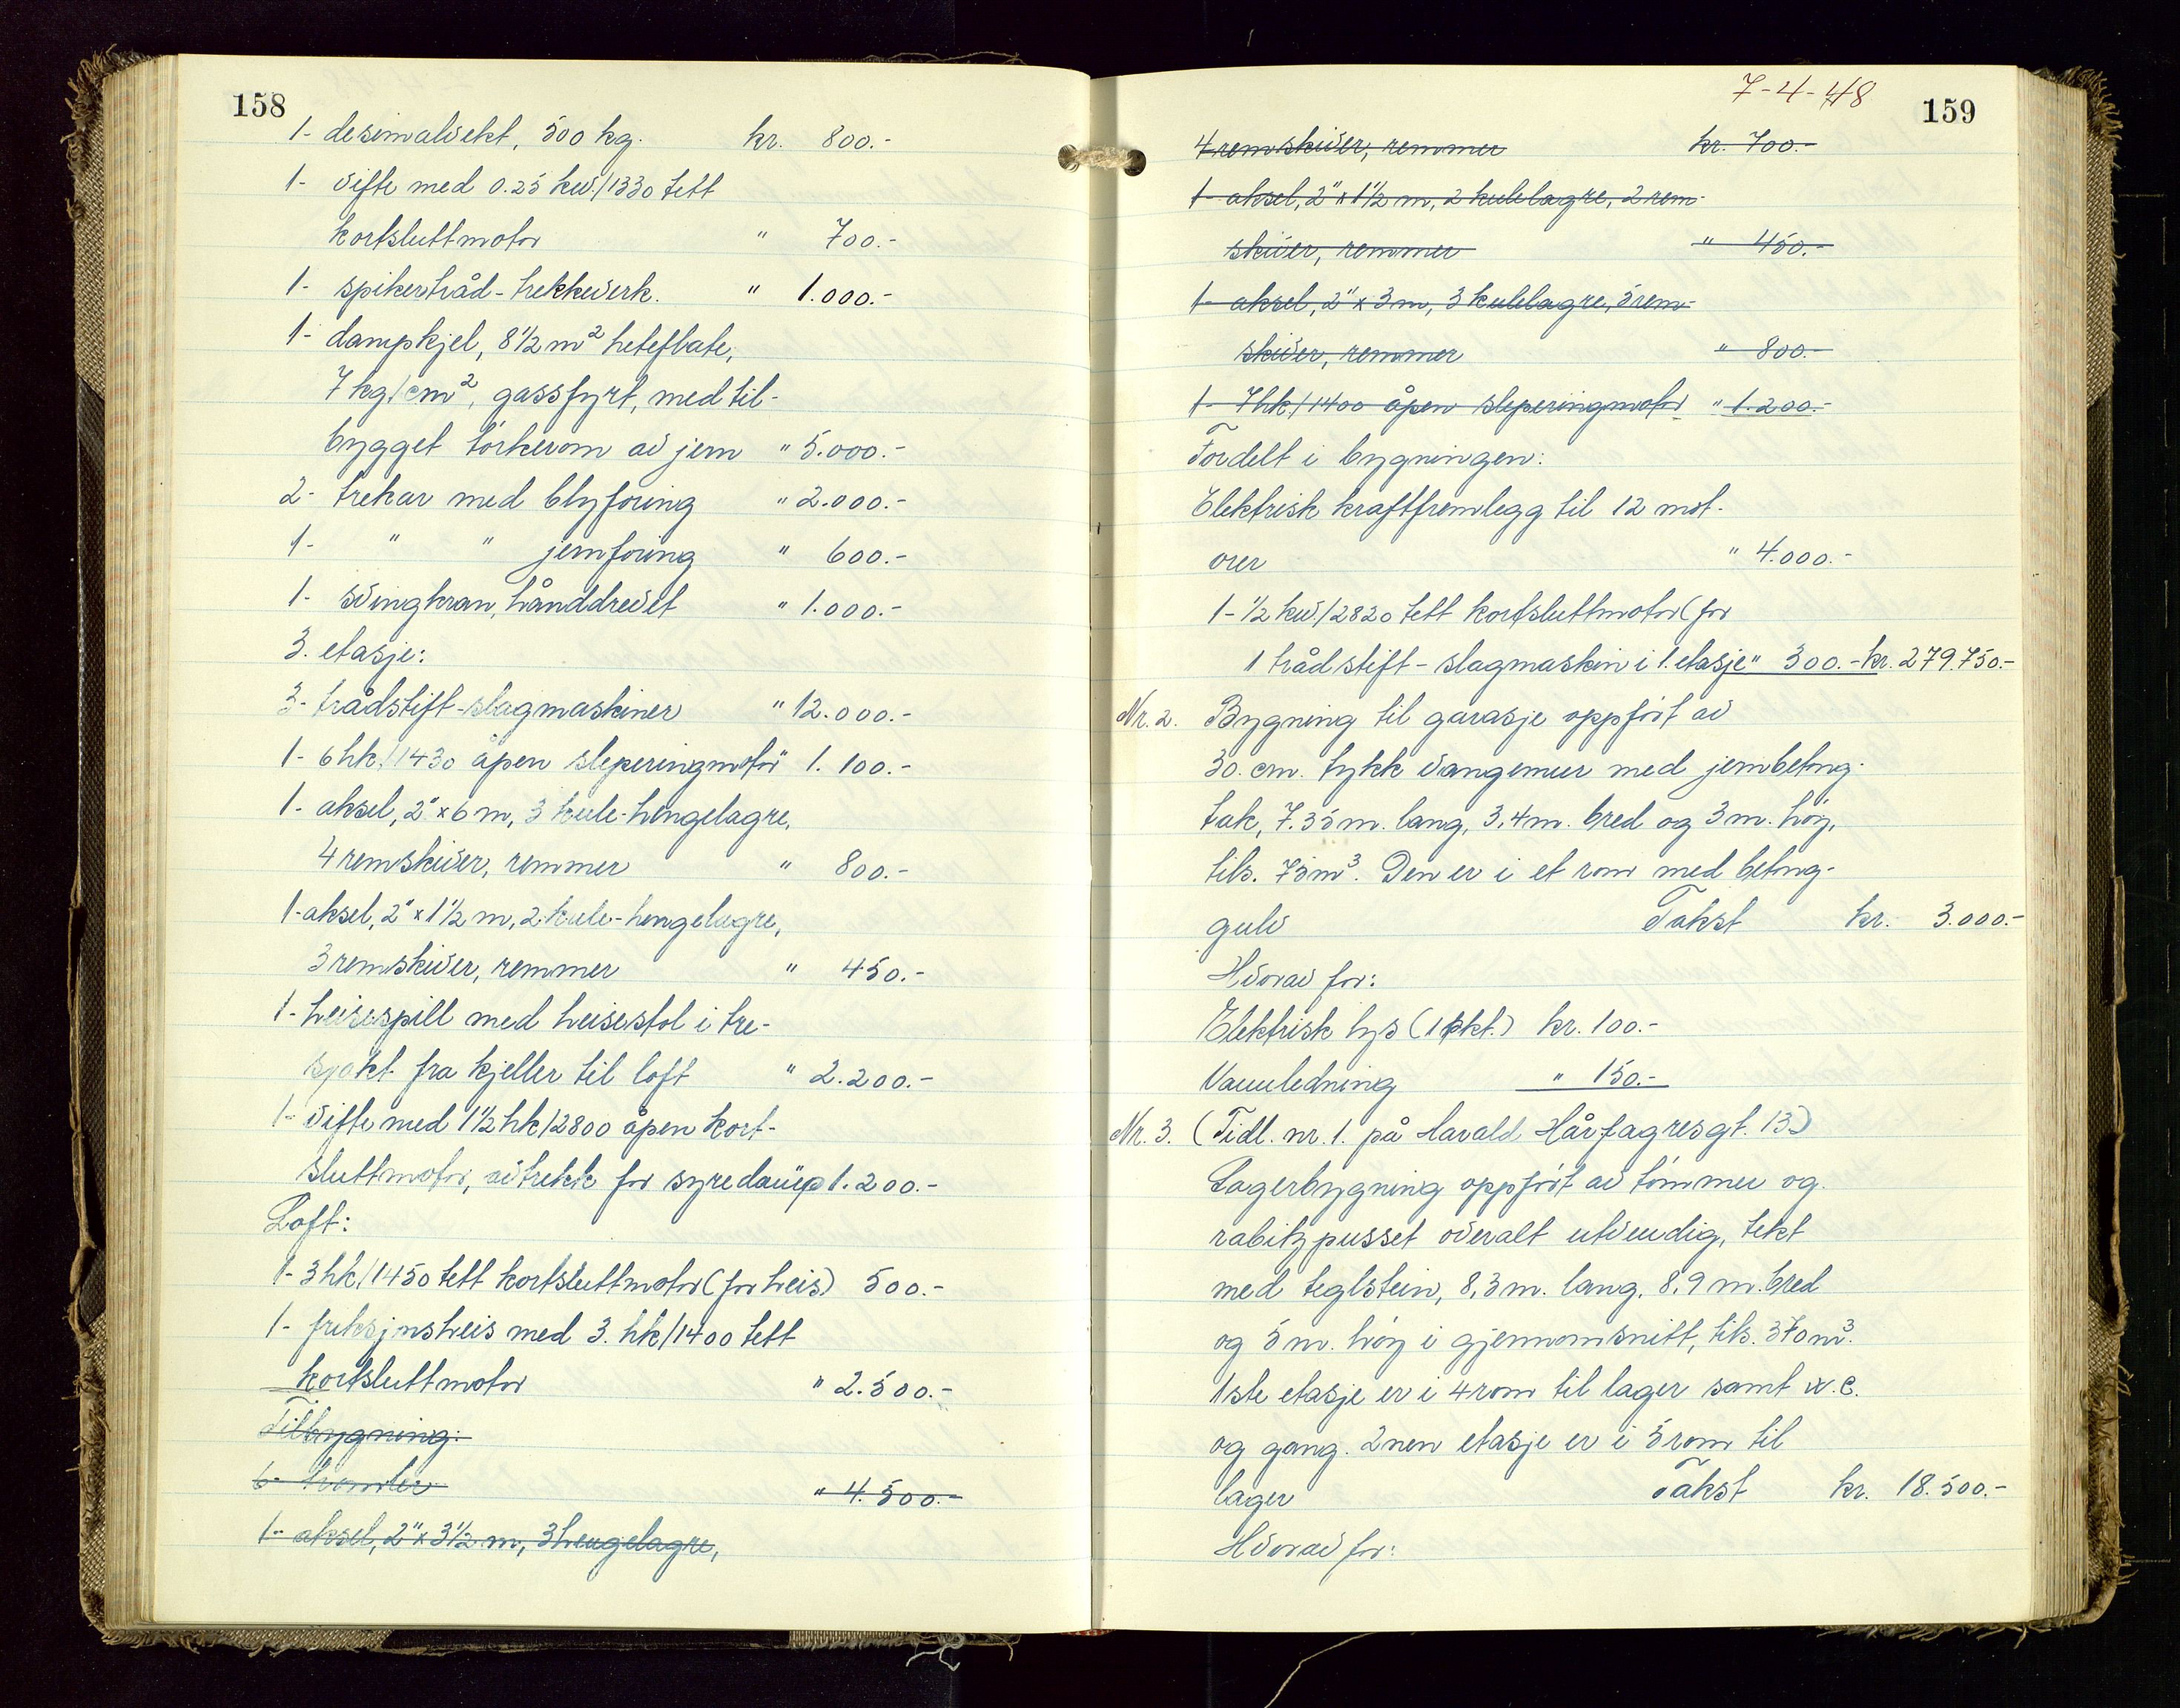 158
1- desimalvekt, 500 kg. kr. 800.-
1- vifte med 0.25 kw./1330 tett
kortsluttmotor " 700.-
1- spikertråd-trekkverk. " 1.000.-
1- dampkjel, 8½ m² heteflate,
7 kg/cm², gassfyrt, med til-
bygget törkerom av jern " 5.000.-
2- trekar med blyforing " 2.000.-
1- " " jernforing " 600.-
1- svingkran, hånddrevet " 1.000.-
3. etasje:
3- trådstift-slagmaskiner " 12.000.-
1- 6 hk/1430 åpen sleperingmotor " 1.100.-
1- aksel, 2" x 6 m, 3 kule-hengelagre,
4 remskiver, remmer " 800.-
1- aksel, 2" x 1½ m, 2 kule-hengelagre,
3 remskiver, remmer " 450.-
1- heisespill med heisestol i tre-
sjakt fra kjeller til loft " 2.200.-
1- vifte med 1½ hk/2800 åpen kort-
sluttmotor, avtrekk for syredamp 1.200.-
Loft:
1- 3 hk/1450 tett kortsluttmotor (for heis) 500.-
1- friksjonsheis med 3. hk/1400 tett
kortsluttmotor " 2.500.-
Tilbygning:
6- tromler " 4.500.-
1- aksel, 2" x 3½ m, 3 hengelagre,
7-4-48
159
4 remskiver, remmer kr. 700.-
1- aksel, 2" x 1½ m, 2 kulelagre, 2 rem-
skiver, remmer " 450.-
1- aksel, 2" x 3 m, 3 kulelagre, 5 rem-
skiver, remmer " 800.-
1- 7 hk/1400 åpen sleperingmotor " 1.200.-
Fordelt i bygningen:
Elektrisk kraftfremlegg til 12 mot-
orer " 4.000.-
1- ½ kw./2820 tett kortsluttmotor (for
1 trådstift-slagmaskin i 1. etasje " 300.- kr. 279.750.-
Nr. 2. Bygning til garasje oppfört av
30. cm. tykk vangemur med jernbetong-
tak, 7.35 m. lang, 3.4 m. bred og 3 m. höy,
tils. 75 m³. Den er i et rom med betong-
gulv Takst kr. 3.000.-
Hvorav for:
Elektrisk lys (1 pkt.) kr. 100.-
Vannledning " 150.-
Nr. 3. (Tidl. nr. 1. på Harald Hårfagresgt. 13.)
Lagerbygning oppfört av tömmer og
rabitzpusset overalt utvendig, tekt
med teglstein, 8,3 m. lang, 8,9 m. bred
og 5 m. höy i gjennomsnitt, tils. 370 m³.
1ste etasje er i 4 rom til lager samt w.c.
og gang. 2nen etasje er i 5 rom til
lager Takst kr. 18.500.-
Hvorav for: